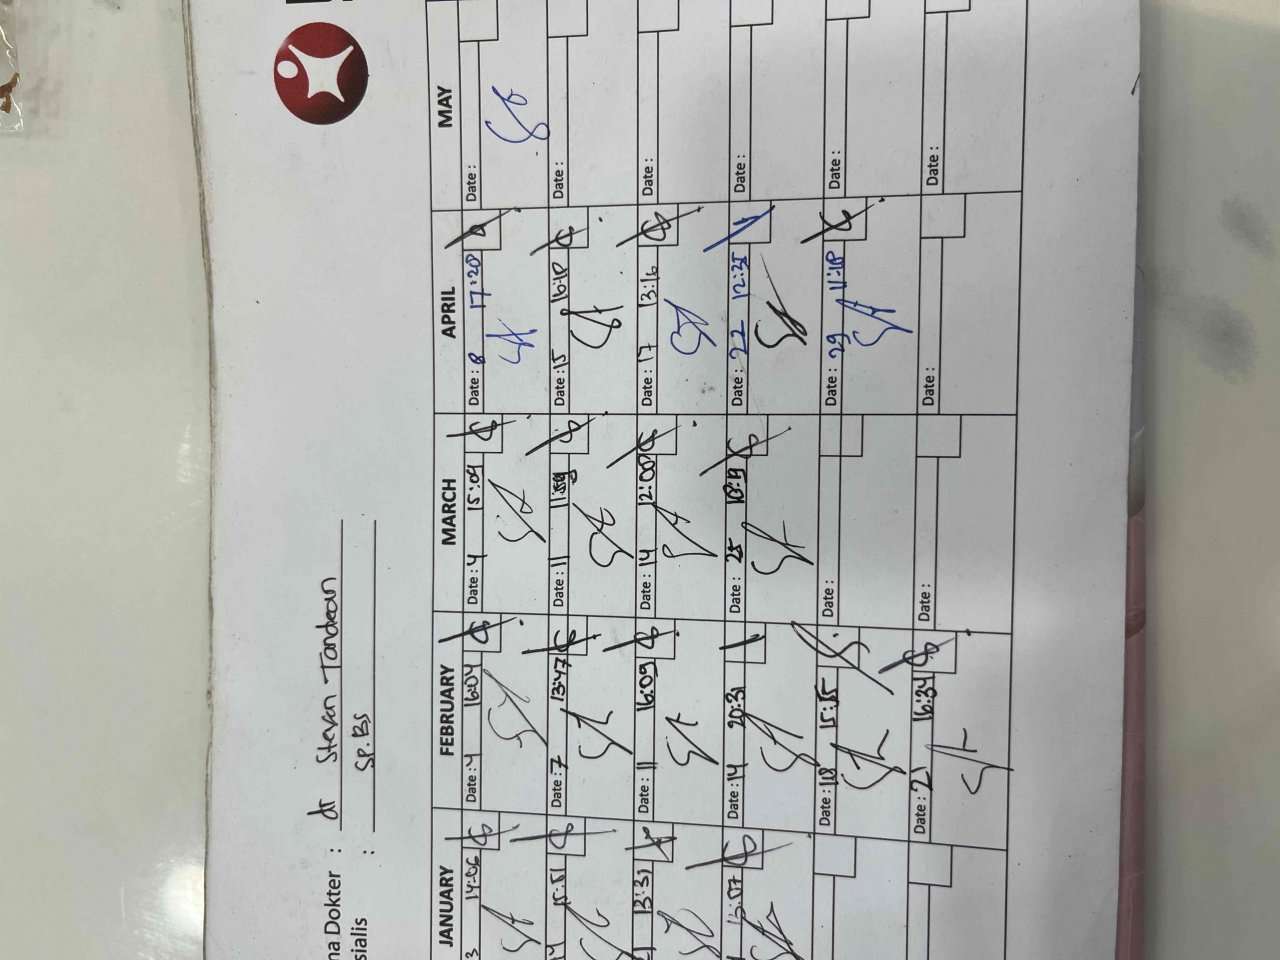 na Dokter : dr Steven Tandean
sialis : SP.BS
JANUARY
3 14:06
15:51
13:31
FEBRUARY
Date: 4 16:04
Date: 7 13:47
Date: 11 16:09
Date: 14 20:31
Date: 18 15:15
Date: 21 16:34
MARCH
Date: 4 15:09
Date: 11 11:59
Date: 14 12:00
Date: 25
Date:
Date:
APRIL
Date: 8 17:20
Date: 15 16:18
Date: 17 13:16
Date: 22 12:35
Date: 29 11:18
Date:
MAY
Date:
Date:
Date:
Date:
Date:
Date: